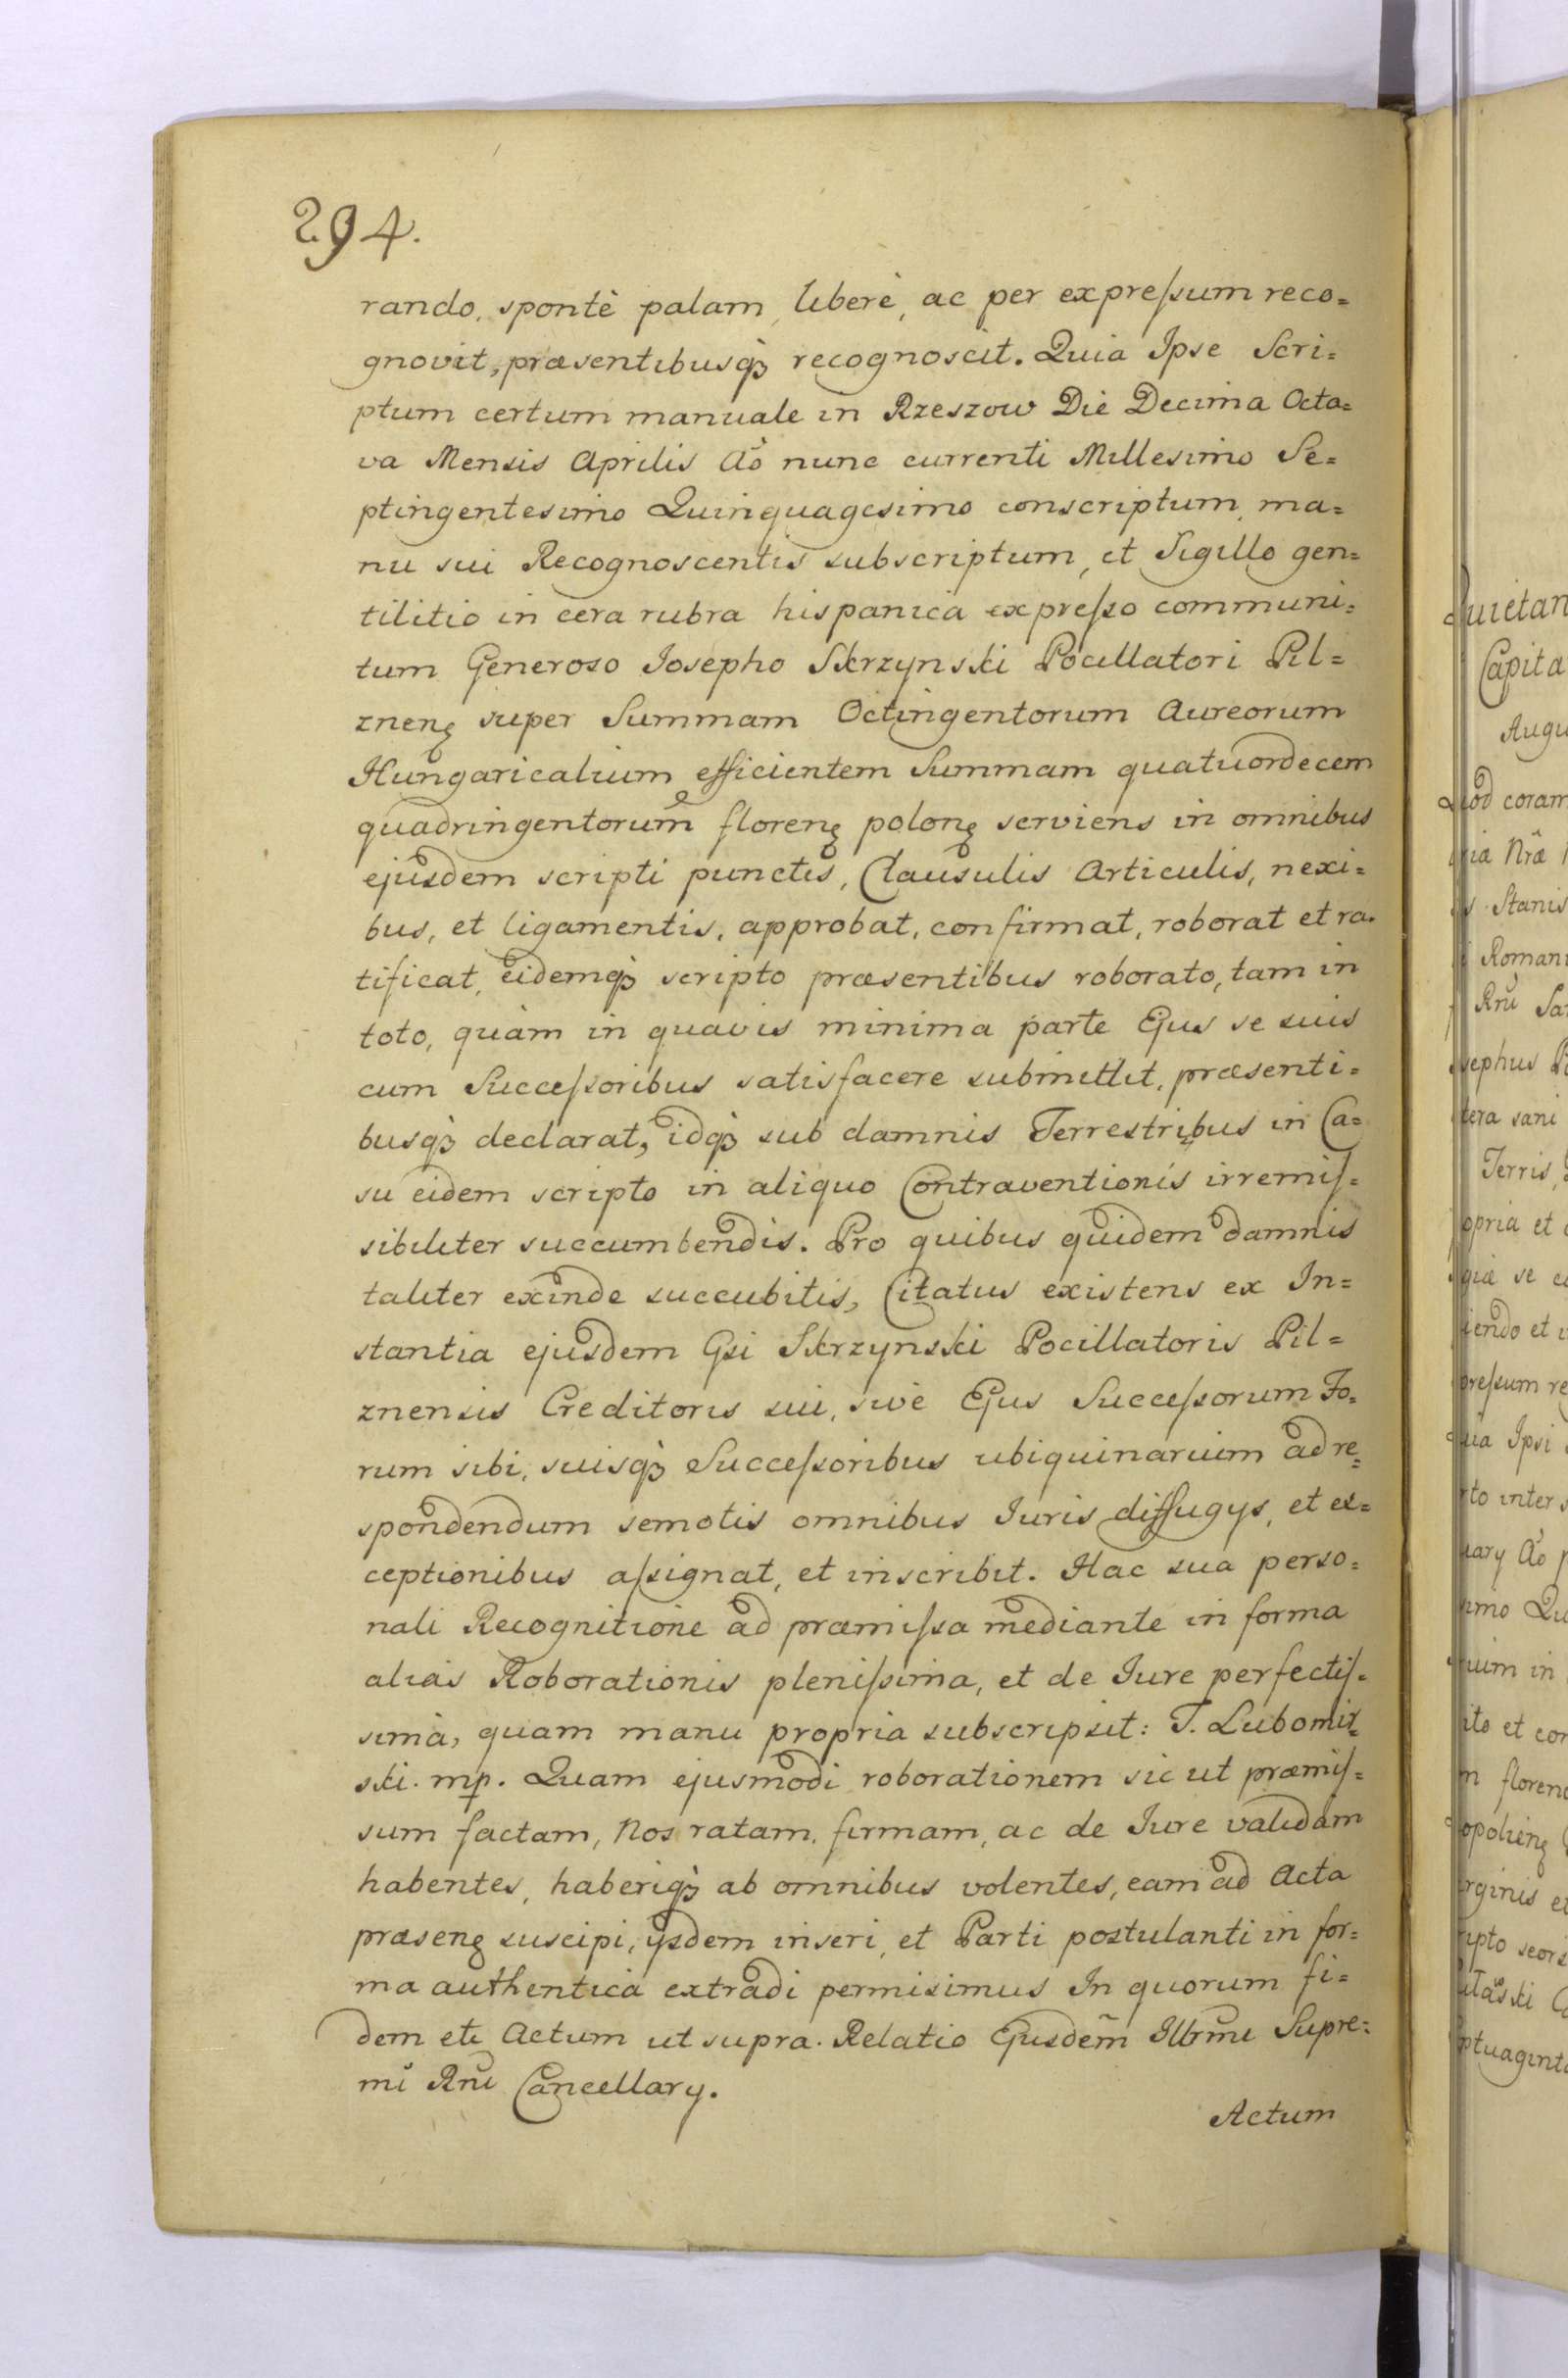 294.
rando, spontè palam, liberè, ac per expreſsum reco=
gnovit, præsentibusqꝫ recognoscit. Quia Ipse Scri=
ptum certum manuale in Rzeszow Die Decima Octa=
va Mensis Aprilis Aõ nunc currenti Millesimo Se=
ptingentesimo Quinquagesimo conscriptum, ma=
nu sui Recognoscentis subscriptum, et Sigillo gen=
tilitio in cera rubra hispanica expreſso communi=
tum Generoso Iosepho Skrzynski Pocillatori Pil=
zneng super Summam Octingentorum Aureorum
Hungaricalium efficientem Summam quatuordecem
quadringentorum floreng polong serviens in omnibus
ejusdem scripti punctis, Clausulis Articulis, nexi=
bus, et ligamentis, approbat, confirmat, roborat et ra=
tificat, eidemqꝫ scripto præsentibus roborato, tam in
toto, quàm in quavis minima parte Ejus se suis
cum Succeſsoribus satisfacere submittit, præsenti=
busqꝫ declarat, idqꝫ sub damnis Terrestribus in Ca=
su eidem scripto in aliquo Contraventionis irremiſ=
sibiliter succumbendis. Pro quibus quidem damnis
taliter exinde succubitis, Citatus existens ex In=
stantia ejusdem Gsi Skrzynski Pocillatoris Pil=
znensis Creditoris sui, sive Ejus Succeſsorum Fo=
rum sibi, suisqꝫ Succeſsoribus ubiquinarium ad re=
spondendum semotis omnibus Iuris diffugys, et ex=
ceptionibus aſsignat, et inscribit. Hac sua perso=
nali Recognitione ad præmiſsa mediante in forma
aliàs Roborationis pleniſsima, et de Iure perfectiſ=
simà, quam manu propria subscripsit: T. Lubomir=
ski. mp. Quam ejusmodi roborationem sic ut præmiſ=
sum factam, Nos ratam, firmam, ac de Iure validam
habentes, haberiqꝫ ab omnibus volentes, eam ad Acta
præseng suscipi, ijsdem inseri, et Parti postulanti in for=
ma authentica extradi permisimus In quorum fi=
dem etc Actum ut supra. Relatio Ejusdem̃ Illrmi Supre=
mi Rni Cancellary.
Actum
Capita
Augu
coram
Stanis
Romani
Terris
Ipsi
inter
et
in